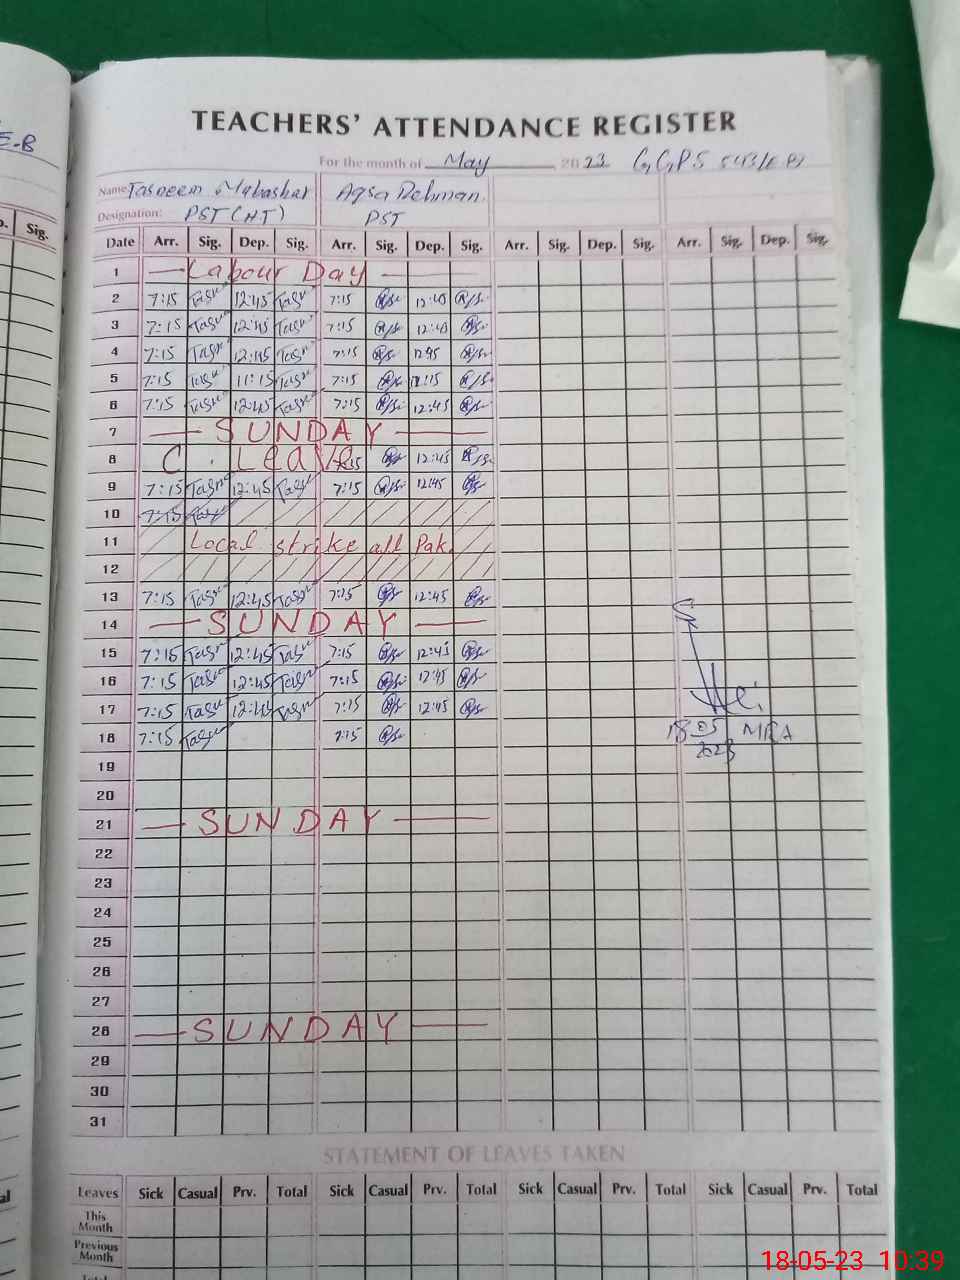 E-B
Sig.
TEACHERS' ATTENDANCE REGISTER
For the month of May 2023 G.G.P.S 543/E.B
Name Tasneem Mubashar Aqsa Rehman
Designation: PST (HT) PST
Date Arr. Sig. Dep. Sig. Arr. Sig. Dep. Sig. Arr. Sig. Dep. Sig. Arr. Sig. Dep. Sig.
1 — Labour Day —
2 7:15 Tasn 12:45 Tasn 7:15 12:45
3 7:15 Tasn 12:45 Tasn 7:15 12:45
4 7:15 Tasn 12:45 Tasn 7:15 12:45
5 7:15 Tasn 11:15 Tasn 7:15 11:15
6 7:15 Tasn 12:45 Tasn 7:15 12:45
7 — SUNDAY —
8 C. Leave 7:15 12:45
9 7:15 Tasn 12:45 Tasn 7:15 12:45
10 7:15 Tasn
11 Local strike all Pak.
12
13 7:15 Tasn 12:45 Tasn 7:15 12:45
14 — SUNDAY —
15 7:15 Tasn 12:45 Tasn 7:15 12:45
16 7:15 Tasn 12:45 Tasn 7:15 12:45
17 7:15 Tasn 12:45 Tasn 7:15 12:45
18 7:15 Tasn 7:15
18 05 MEA
2023
19
20
21 — SUNDAY —
22
23
24
25
26
27
28 — SUNDAY —
29
30
31
STATEMENT OF LEAVES TAKEN
Leaves Sick Casual Prv. Total Sick Casual Prv. Total Sick Casual Prv. Total Sick Casual Prv. Total
This Month
Previous Month
Total
18-05-23 10:39